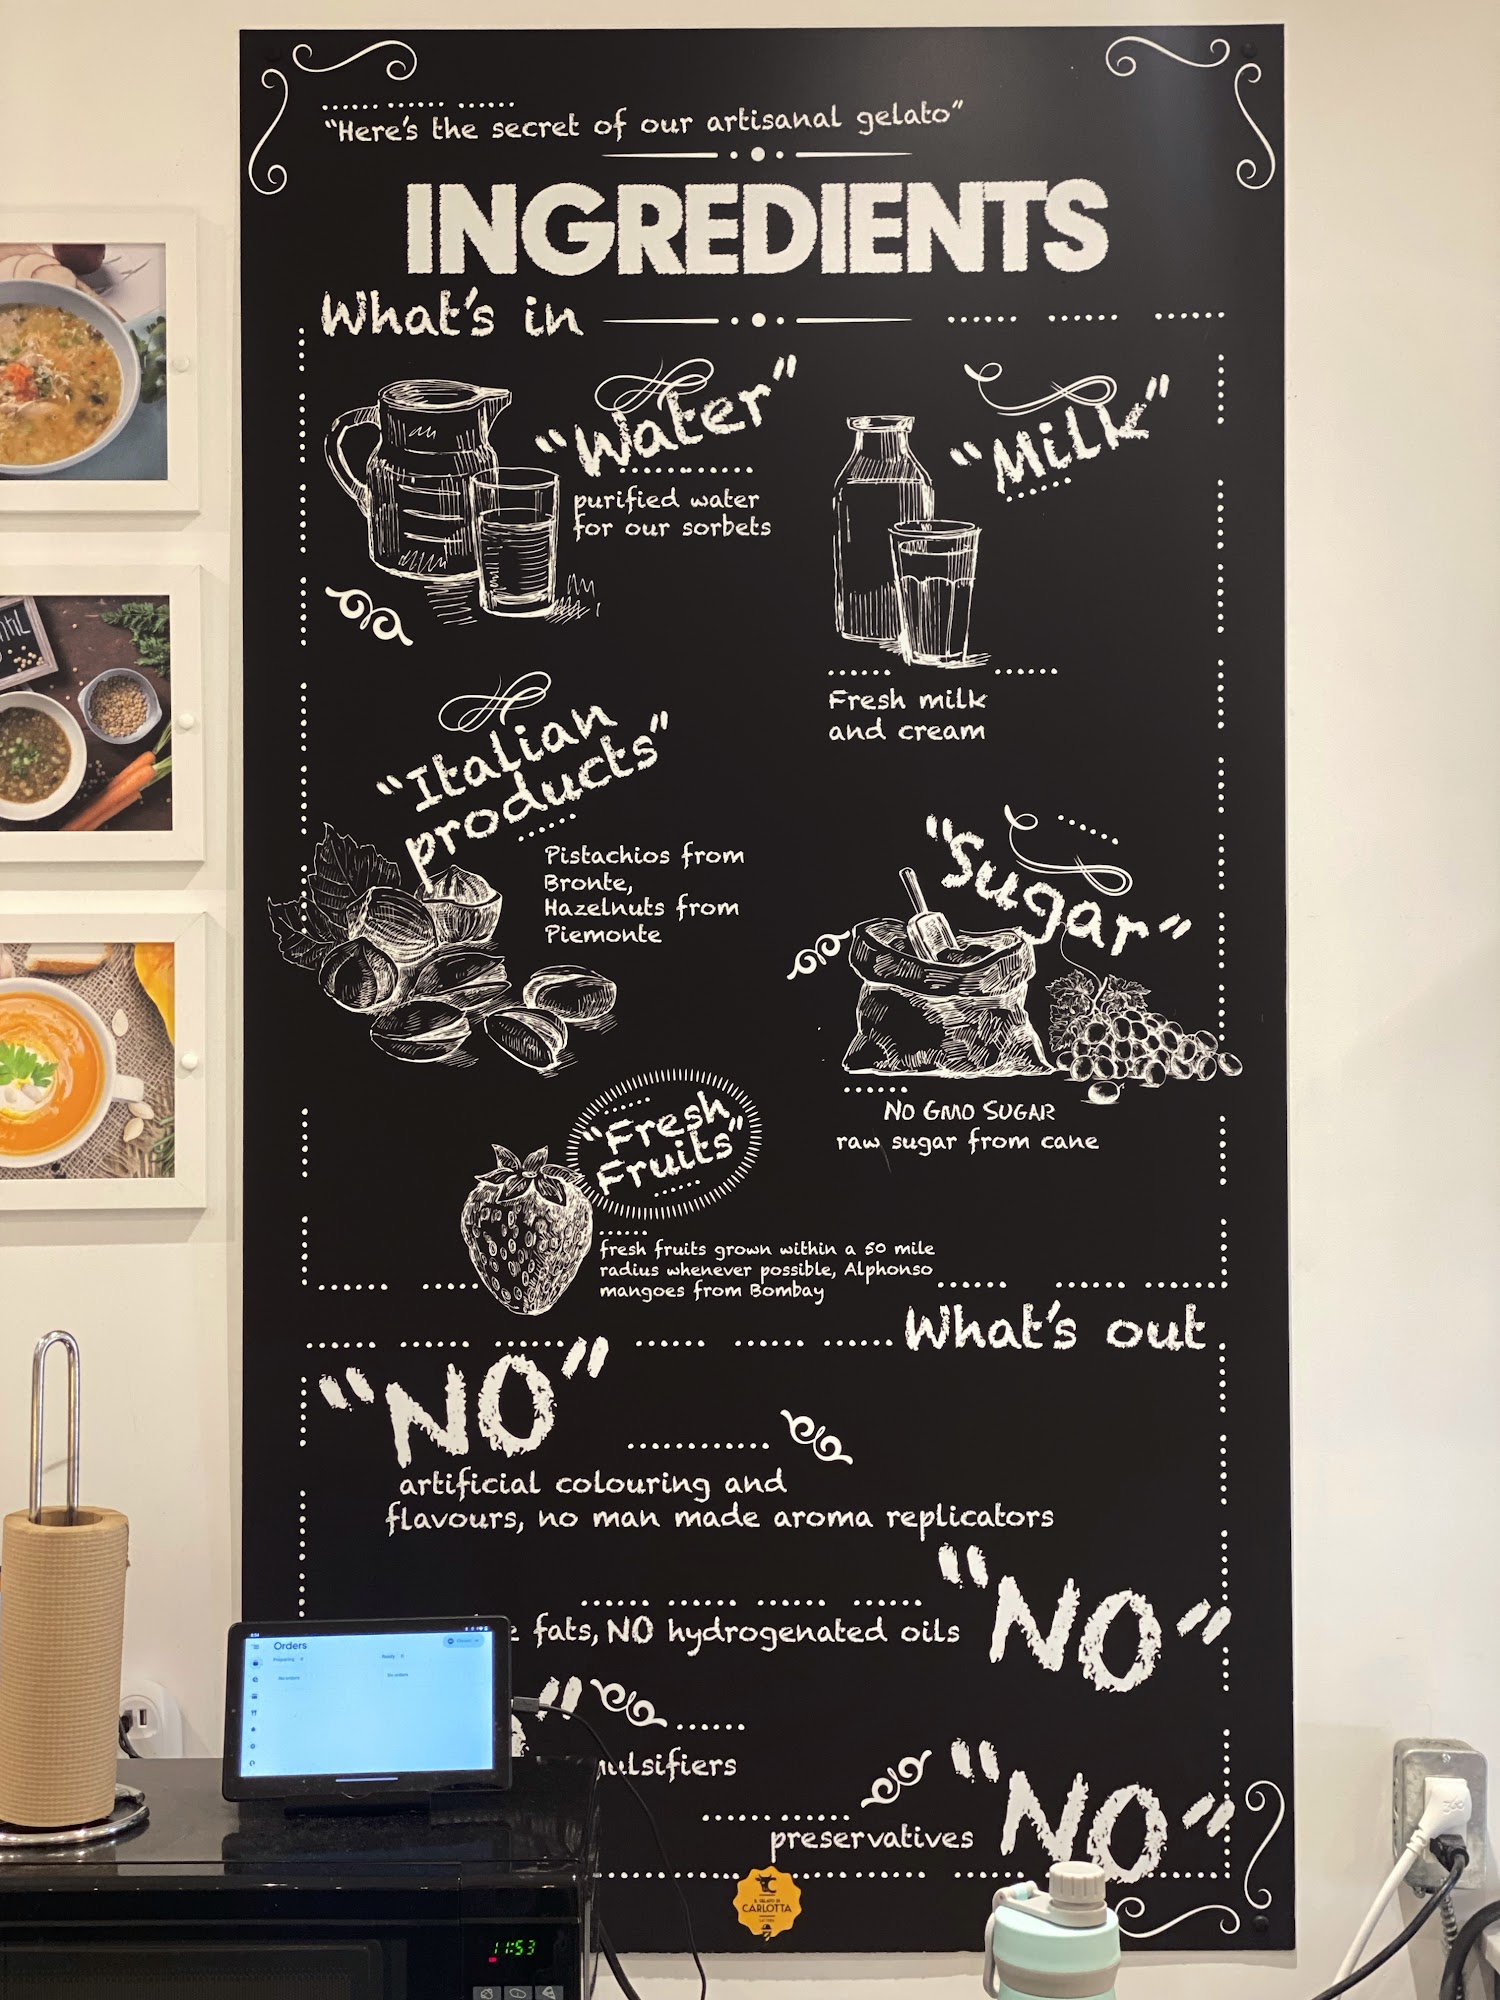 "Here's the secret of our artisanal gelato"
INGREDIENTS
What's in
"Water"
purified water
for our sorbets
"Milk"
Fresh milk
and cream
"Italian
products"
Pistachios from
Bronte,
Hazelnuts from
Piemonte
"Sugar"
NO GMO SUGAR
raw sugar from cane
"Fresh
Fruits"
fresh fruits grown within a 50 mile
radius whenever possible, Alphonso
mangoes from Bombay
What's out
"NO"
artificial colouring and
flavours, no man made aroma replicators
fats, NO hydrogenated oils
"NO"
preservatives
"NO"
CARLOTTA
Orders
Preparing
Ready
No orders
No orders
11:53
360